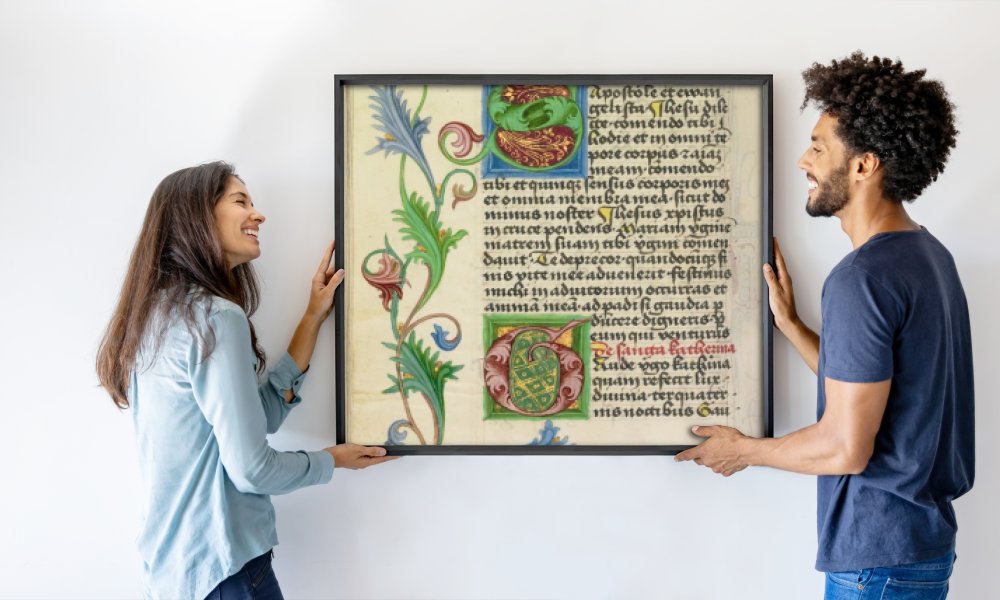 apostole et ewan
gelista Ihesu dile
cte comendo tibi
hodie et in omni te
pore corpus ⁊ aīaʒ
meam comendo
tibi et quinqʒ sensus corporis mei
et omnia membra mea sicut do
minus noster Ihesus xp̄istus
in cruce pendens Mariam v̄gine
matrem suam tibi v̄gini comen
dauit Te deprecor quandocūqʒ fi
nis vite mee aduenerit festinus
michi in adiutorium occurras et
animā meā ad padisi gaudia p
ducere digneris p
eum qui venturus
De sancta katherina
Aude v̄go kath̄ina
quam refecit lux
diuina ter quater
nis noctibus Gau